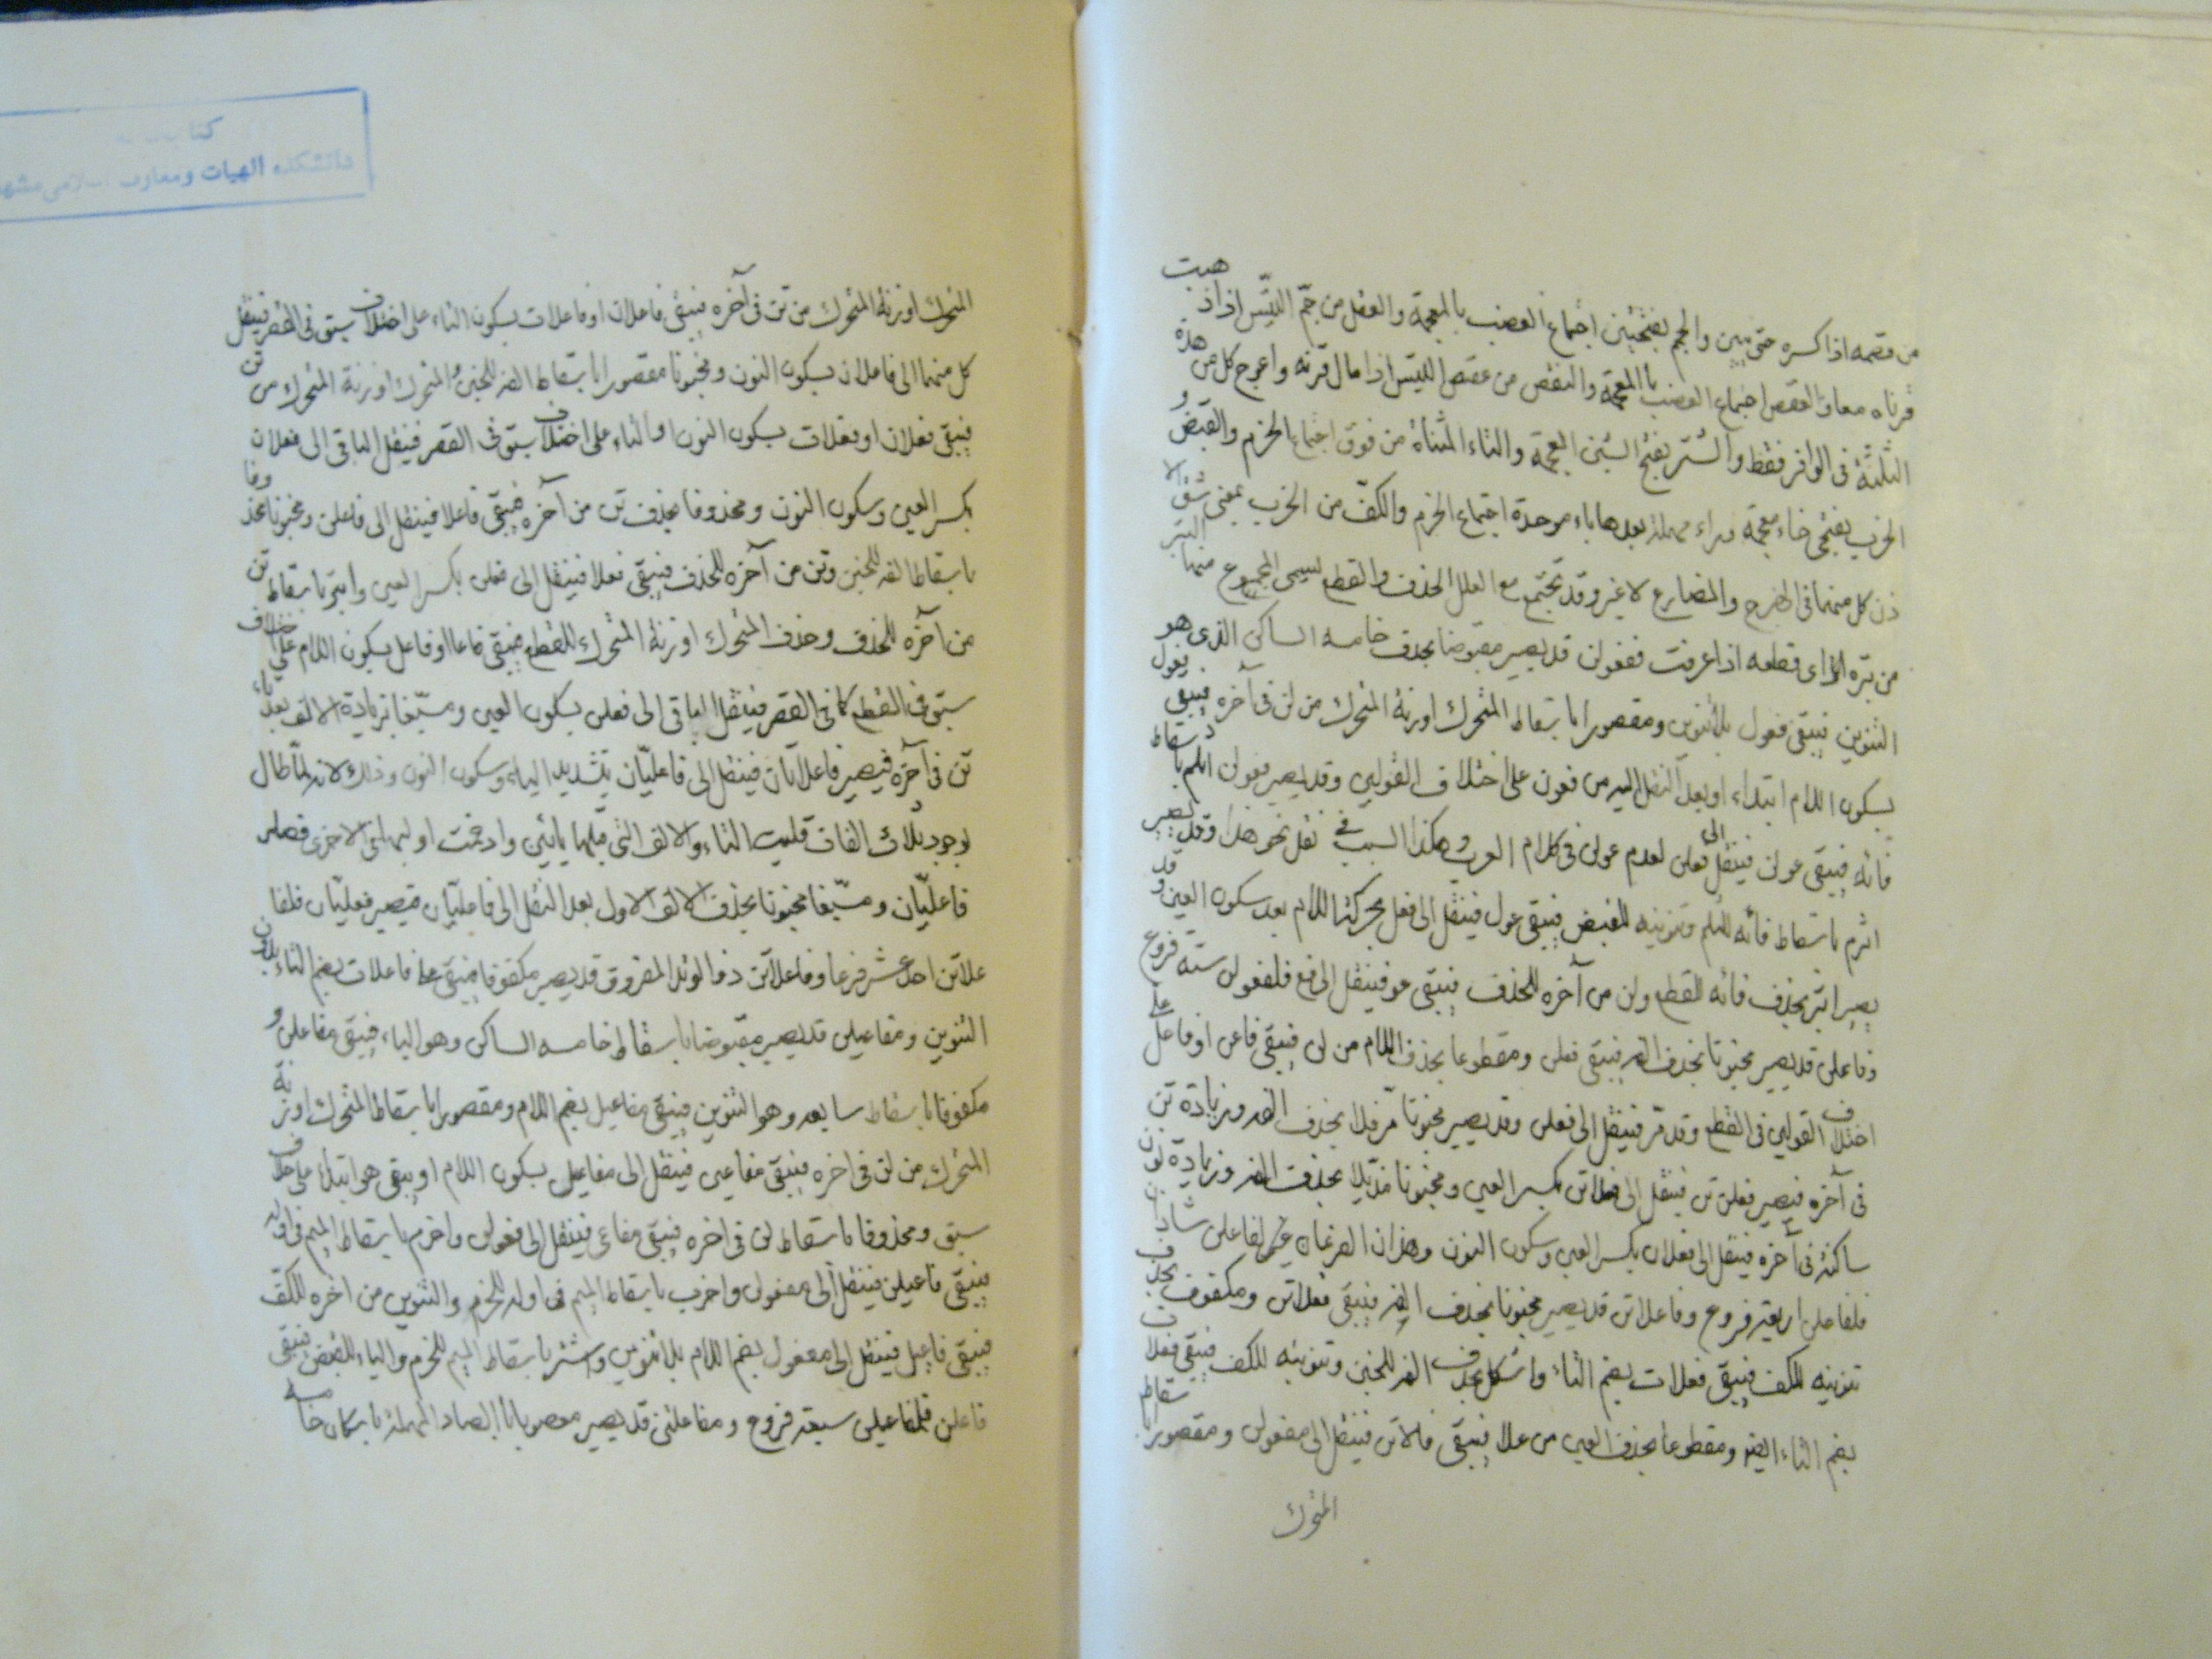 من قصمه اذا كسره حتى يبين والجم بفتحتين اجتماع العضب بالمعجمة والعقل من جمّ التيس اذا ذهبت
قرناه معا والعقص اجتماع العضب بالمعجمة والنقص من عقص التيس اذا مال قرنه واعوج كل من هذه
الثلثة فى الوافر فقط والشتر بفتح الشين المعجمة والتاء المثناة من فوق اجتماع الخرم والقبض و
الخرب بفتحى خاء معجمة وراء مهملة بعدها باء موحدة اجتماع الخرم والكفّ من الخرب بمعنى شق الا
ذن كل منهما فى الهزج والمضارع لا غير وقد تجتمع مع العلل الحذف والقطع ليسمى المجموع منهما البتر
من بتره اى قطعه اذا عرفت ففعولن قد يصير مقبوضا بحذف خامسه الساكن الذى هو
التنوين فيبقى فعول بلا تنوين ومقصورا باسقاط المتحرك اوزنة المتحرك من لن فى آخره فيبقى فعول
بسكون اللام ابتداء او بعد النقل اليه من فعون على اختلاف القولين وقد يصير فعولن اثلم باسقاط
فائه فيبقى عولن فينقل الى فعلن لعدم عولن فى كلام العرب وهكذا السبب فى نقل نحو هذا وقد يصير
اثرم باسقاط فائه للثلم وتنوينه للقبض فيبقى عول فينقل الى فعل بحركة اللام بعد سكون العين وقد
يصير ابتر بحذف فائه للقطع ولن من آخره للحذف فيبقى عو فينقل الى فع فلفعولن ستة فروع
وفاعلن قد يصير مخبونا بحذف الفه فيبقى فعلن ومقطوعا بحذف اللام من لن فيبقى فاعن او فاعل على
اختلاف القولين فى القطع وقد مرّ فينقل الى فعلن وقد يصير مخبونا مرفلا بحذف الفه وزيادة تن
فى آخره فيصير فعلن تن فينقل الى فعلاتن بكسر العين ومخبونا مذيّلا بحذف الفه وزيادة نون
ساكنة فى آخره فينقل الى فعلان بكسر العين وسكون النون وهذان الفرعان لفاعلن شاذان
فلفاعلن اربعة فروع وفاعلاتن قد يصير مخبونا بحذف الفه فيبقى فعلاتن ومكفوف بحذف
تنوينه للكف فيبقى فعلات بضم التاء واشكل بحذف الفه للخبن وتنوينه للكف فيبقى فعلات
بضم التاء ايضا ومقطوعا بحذف العين من علا فيبقى فالاتن فينقل الى مفعولن ومقصورا باسقاط
المتحرك
المتحرك اوزنة المتحرك من تن فى آخره فيبقى فاعلان او فاعلات بسكون التاء على اختلاف سبق فى القصر فينقل
كل منهما الى فاعلان بسكون النون ومخبونا مقصورا باسقاط الفه للخبن والمتحرك اوزنة المتحرك من تن
فيبقى فعلان او فعلات بسكون النون او التاء على اختلاف سبق فى القصر فينقل الباقى الى فعلان
بكسر العين وسكون النون ومحذوفا بحذف تن من آخره فيبقى فاعلا فينقل الى فاعلن ومخبونا محذوفا
باسقاط الفه للخبن وتن من آخره للحذف فيبقى فعلا فينقل الى فعلن بكسر العين وابتر باسقاط تن
من آخره للحذف وحذف المتحرك اوزنة المتحرك للقطع فيبقى فاعا او فاعل بسكون اللام على اختلاف
سبق فى القطع كما فى القصر فينقل الباقى الى فعلن بسكون العين ومسبّغا بزيادة الالف بعد تاء
تن فى آخره فيصير فاعلاتان فينقل الى فاعليّان بتشديد الياء وسكون النون وذلك لانه لمّا طال
بوجود ثلاث الفات قلبت التاء والالف التى قبلها يائين وادغمت اوليهما فى الاخرى فصار
فاعليّان ومسبّغا مخبونا بحذف الالف الاول بعد النقل الى فاعليّان فيصير فعليّان فلفا
علاتن احد عشر فرعا وفاعلاتن ذو الوتد المفروق قد يصير مكفوفا فيبقى فاعلات بضم التاء بدون
التنوين ومفاعيلن قد يصير مقبوضا باسقاط خامسه الساكن وهو الياء فيبقى مفاعلن و
مكفوفا باسقاط سابعه وهو التنوين فيبقى مفاعيل بضم اللام ومقصورا باسقاط المتحرك اوزنة
المتحرك من لن فى اخره فيبقى مفاعين فينقل الى مفاعيل بسكون اللام او يبقى هو ابتداء على خلاف
سبق ومحذوفا باسقاط لن فى اخره فيبقى مفاعى فينقل الى فعولن واخرم باسقاط الميم فى اوله
فيبقى فاعيلن فينقل الى مفعولن واخرب باسقاط الميم فى اوله للخرم والتنوين من اخره للكفّ
فيبقى فاعيل فينقل الى مفعول بضم اللام بلا تنوين واشتر باسقاط الميم للخرم والياء للقبض فيبقى
فاعلن فلمفاعيلن سبعة فروع ومفاعلتن قد يصير معصوبا بالصاد المهملة باسكان خامسه
كتابخانه
دانشكده الهيات ومعارف اسلامى مشهد